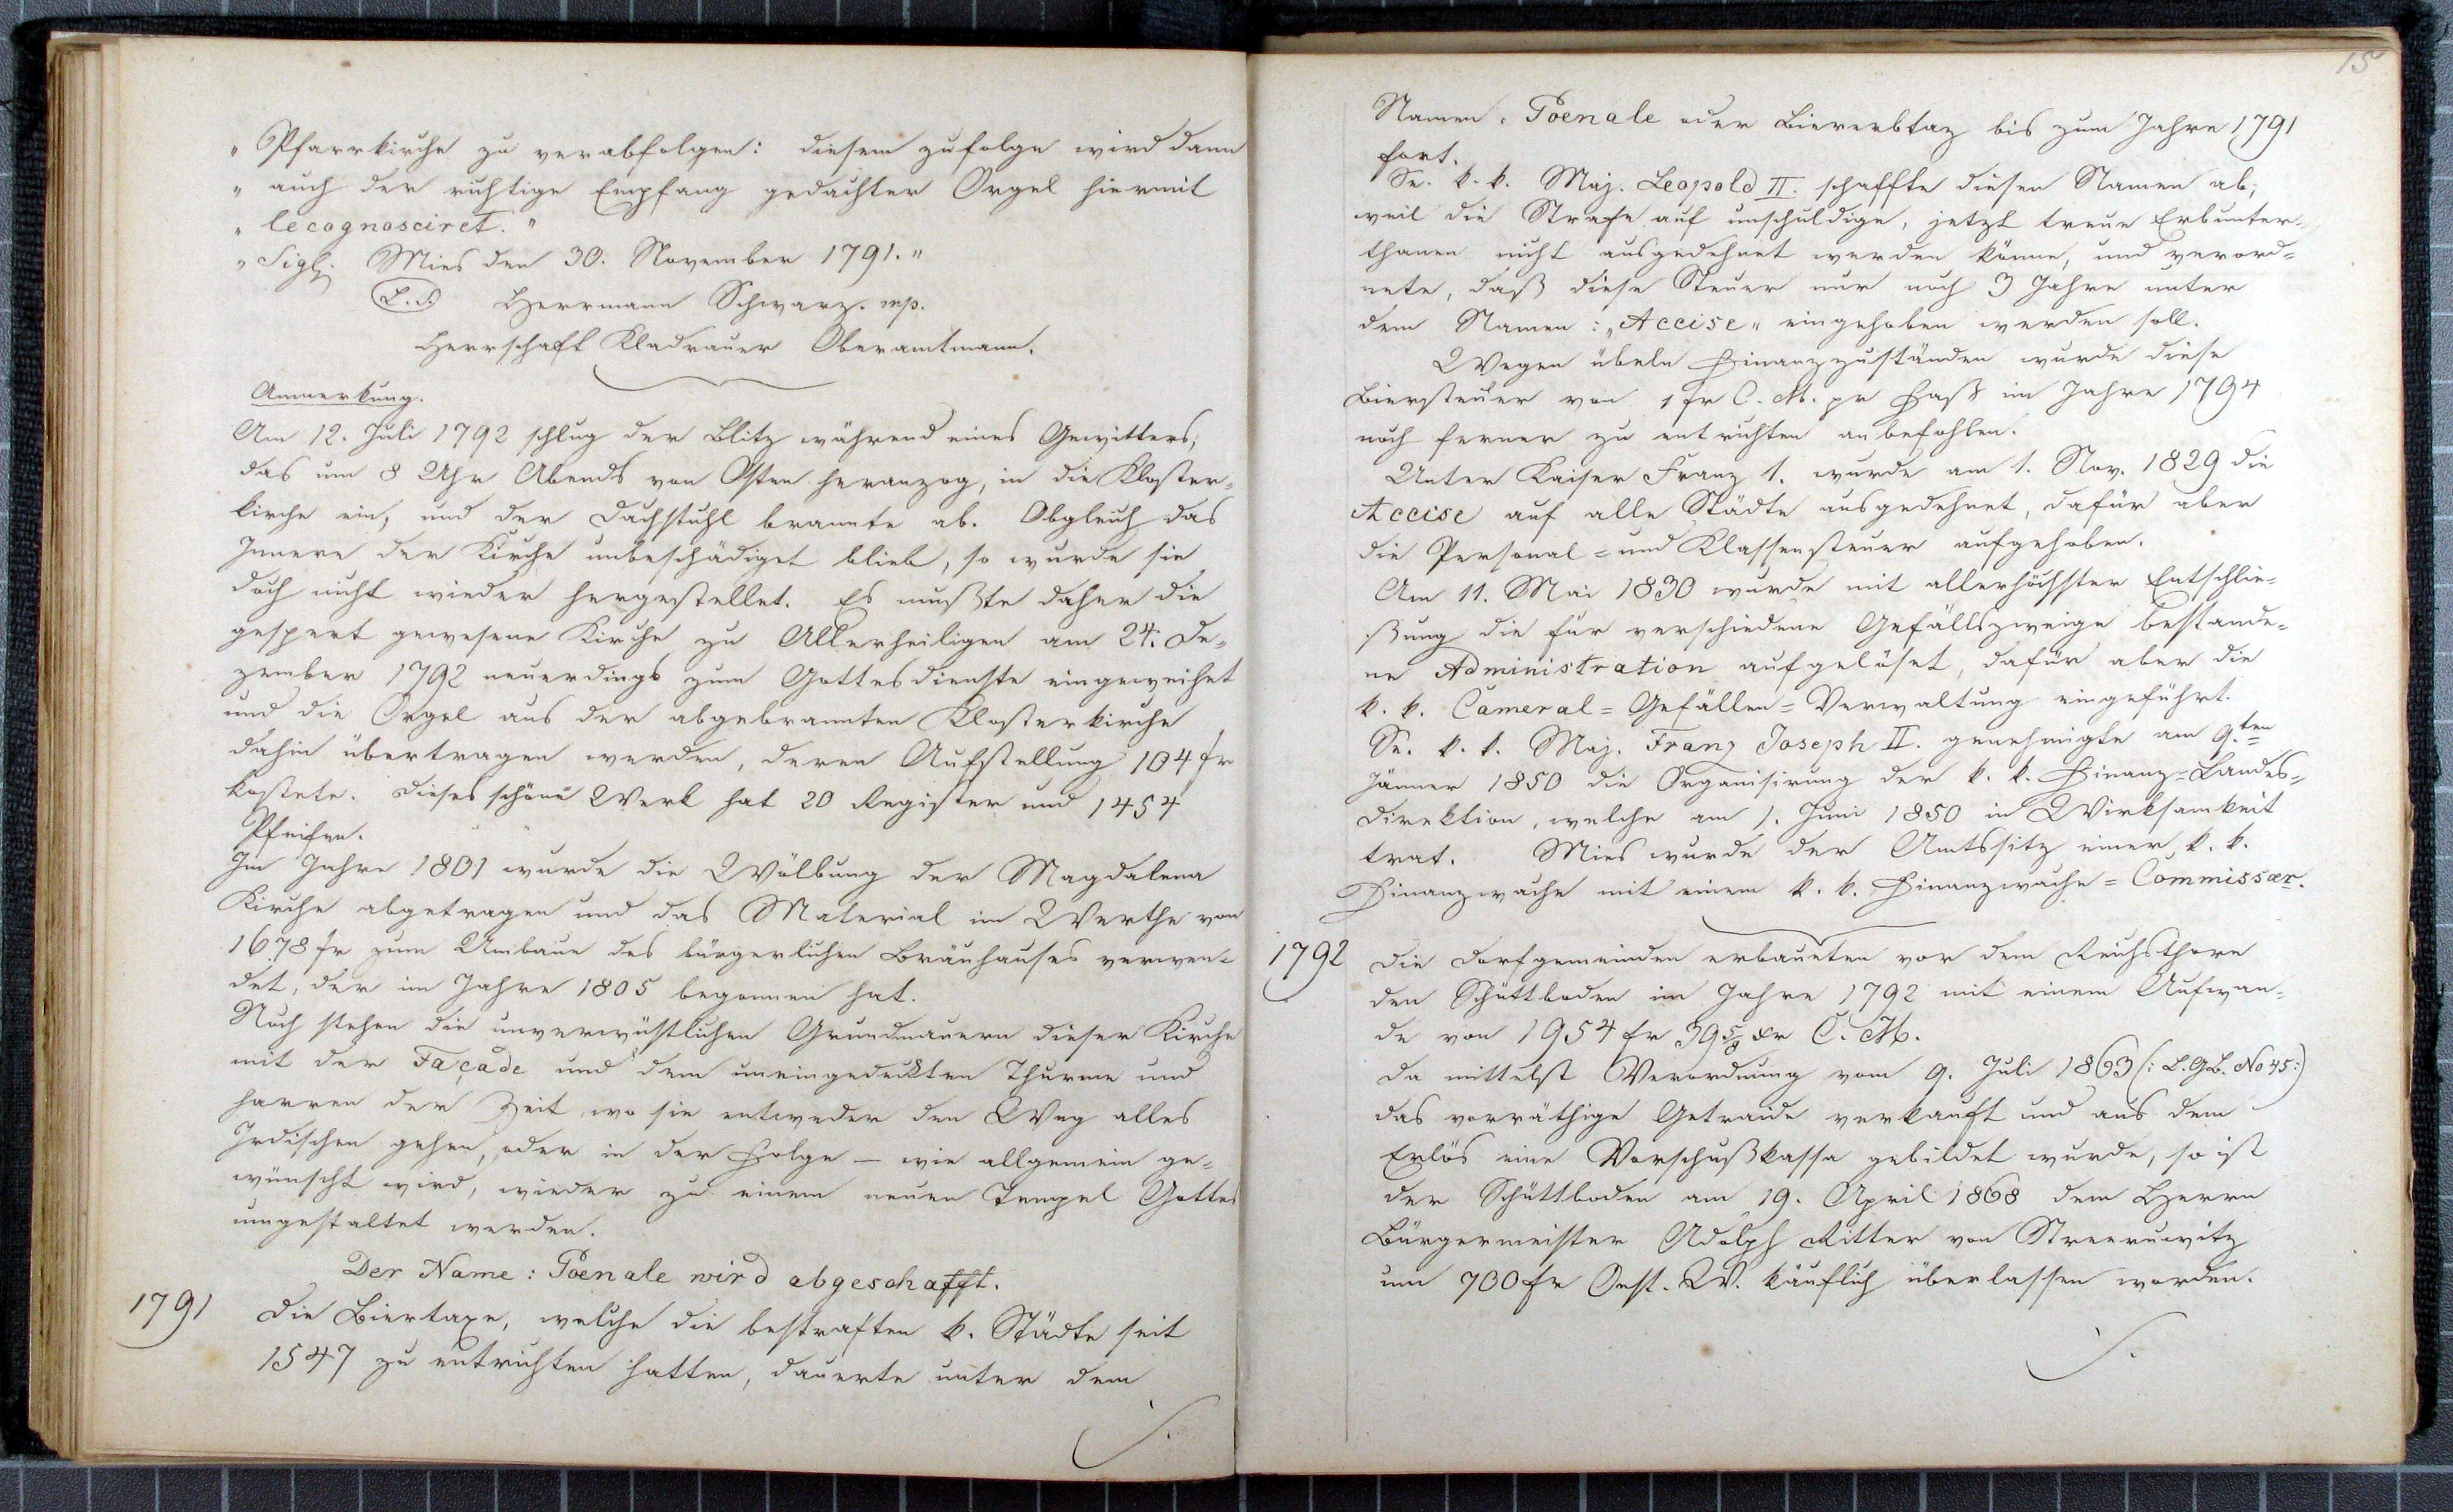 „ Pfarrkirche zu verabfolgen: diesem zufolge wird dann
„ auch der richtige Empfang gedachter Orgel hiermit
„ recognosciret."
„ Sigl. Mies den 30. November 1791."
L.S. Herrmann Schwarz. mp.
Herrschaft Kladrauer Oberamtmann.
Anmerkung.
Am 12. Juli 1792 schlug der Blitz während eines Gewitters,
das um 8 Uhr Abends von Osten heranzog, in die Kloster-
kirche ein, und der Dachstuhl brannte ab. Obgleich das
Innere der Kirche unbeschädiget blieb, so wurde sie
doch nicht wieder hergestellet. Es mußte daher die
gespert gewesene Kirche zu Allerheiligen am 24. De-
zember 1792 neuerdings zum Gottesdienste eingeweihet
und die Orgel aus der abgebrannten Klosterkirche
dahin übertragen werden, deren Aufstellung 104 fr
kostete. Dieses schöne Werk hat 20 Register und 1454
Pfeifen.
Im Jahre 1801 wurde die Wölbung der Magdalena
Kirche abgetragen und das Material im Werthe von
1678 fr zum Umbaue des bürgerlichen Bräuhauses verwen-
det, der im Jahre 1805 begonnen hat.
Noch stehen die unverwüstlichen Grundmauern dieser Kirche
mit der Façade und dem uneingedeckten Thurme und
harren der Zeit, wo sie entweder den Weg alles
Irdischen gehen, oder in der Folge – wie allgemein ge-
wünscht wird, wieder zu einem neuen Tempel Gottes
umgestaltet werden.
Der Name: Poenale wird abgeschafft.
1791 Die Biertaxe, welche die bestraften k. Städte seit
1547 zu entrichten hatten, dauerte unter dem
15
Namen: Poenale oder Biererbtaz bis zum Jahre 1791
fort.
Se. k. k. Maj. Leopold II. schaffte diesen Namen ab,
weil die Strafe auf unschuldige, jetzt treue Erbunter-
thanen nicht ausgedehnet werden könne, und verord-
nete, daß diese Steuer nur noch 3 Jahre unter
dem Namen: „Accise" eingehoben werden soll.
Wegen übeln Finanzzuständen wurde diese
Biersteuer von 1 fr C. M. pr Faß im Jahre 1794
noch ferner zu entrichten anbefohlen.
Unter Kaiser Franz 1. wurde am 1. Nov. 1829 die
Accise auf alle Städte ausgedehnet, dafür aber
die Personal- und Klassensteuer aufgehoben.
Am 11. Mai 1830 wurde mit allerhöchster Entschlie-
ßung die für verschiedene Gefällszweige bestande-
ne Administration aufgelöset, dafür aber die
k. k. Cameral-Gefällen-Verwaltung eingeführt.
Se. k. k. Maj. Franz Joseph II. genehmigte am 9.ten
Jänner 1850 die Organisirung der k. k. Finanz-Landes-
direktion, welche am 1. Juni 1850 in Wirksamkeit
trat. Mies wurde der Amtssitz einer k. k.
Finanzwache mit einem k. k. Finanzwache-Commissær.
1792 Die Dorfgemeinden erbaueten vor dem Reichsthore
den Schüttboden im Jahre 1792 mit einem Aufwan-
de von 1954 fr 39 5/8 xr C. M.
Da mittelst Verordnung vom 9. Juli 1863 (: L. G. B. No 45:)
das vorräthige Getraide verkauft und aus dem
Erlös eine Vorschußkassa gebildet wurde, so ist
der Schüttboden am 19. April 1868 dem Herrn
Bürgermeister Adolph Ritter von Streeruwitz
um 700 fr Oest. W. käuflich überlassen worden.